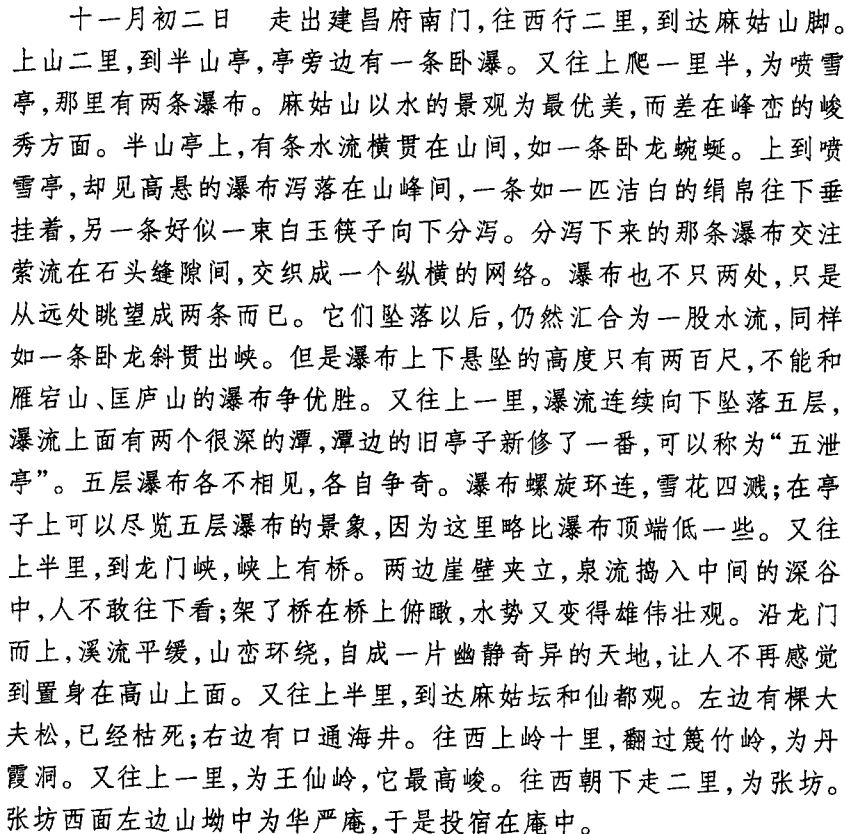 十一月初二日　走出建昌府南门,往西行二里,到达麻姑山脚。
上山二里,到半山亭,亭旁边有一条卧瀑。又往上爬一里半,为喷雪
亭,那里有两条瀑布。麻姑山以水的景观为最优美,而差在峰峦的峻
秀方面。半山亭上,有条水流横贯在山间,如一条卧龙蜿蜒。上到喷
雪亭,却见高悬的瀑布泻落在山峰间,一条如一匹洁白的绢帛往下垂
挂着,另一条好似一束白玉筷子向下分泻。分泻下来的那条瀑布交注
萦流在石头缝隙间,交织成一个纵横的网络。瀑布也不只两处,只是
从远处眺望成两条而已。它们坠落以后,仍然汇合为一股水流,同样
如一条卧龙斜贯出峡。但是瀑布上下悬坠的高度只有两百尺,不能和
雁宕山、匡庐山的瀑布争优胜。又往上一里,瀑流连续向下坠落五层,
瀑流上面有两个很深的潭,潭边的旧亭子新修了一番,可以称为“五泄
亭”。五层瀑布各不相见,各自争奇。瀑布螺旋环连,雪花四溅;在亭
子上可以尽览五层瀑布的景象,因为这里略比瀑布顶端低一些。又往
上半里,到龙门峡,峡上有桥。两边崖壁夹立,泉流捣入中间的深谷
中,人不敢往下看;架了桥在桥上俯瞰,水势又变得雄伟壮观。沿龙门
而上,溪流平缓,山峦环绕,自成一片幽静奇异的天地,让人不再感觉
到置身在高山上面。又往上半里,到达麻姑坛和仙都观。左边有棵大
夫松,已经枯死;右边有口通海井。往西上岭十里,翻过篾竹岭,为丹
霞洞。又往上一里,为王仙岭,它最高峻。往西朝下走二里,为张坊。
张坊西面左边山坳中为华严庵,于是投宿在庵中。